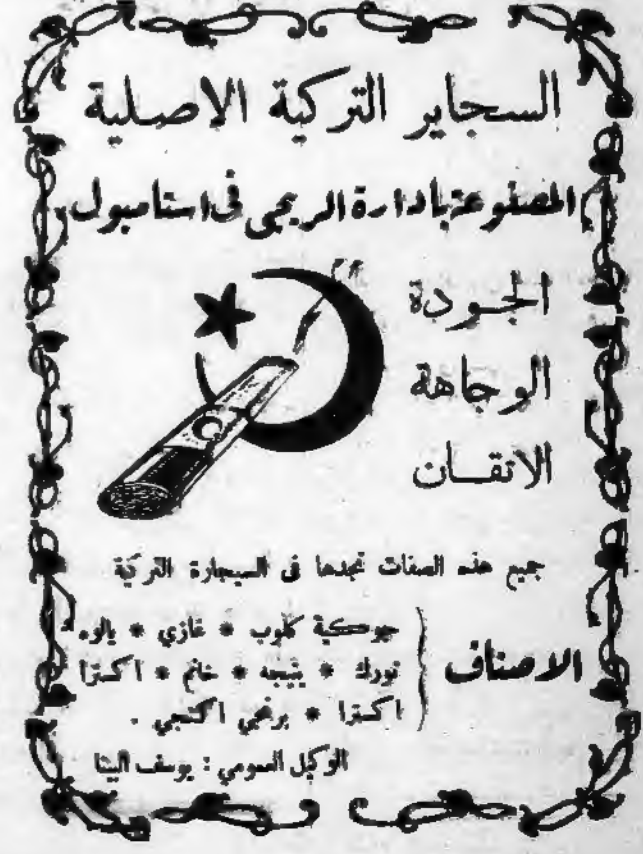 السجاير التركية الاصلية
المصنوعة بادارة الريجى فى استامبول
الجودة
الوجاهة
الاتقان
جميع هذه الصفات تجدها فى السيجارة التركية
الاصناف
جوكية كلوب * غازي * يالوه
تورك * ينيجه * خانم * اكسترا
اكسترا * برنجي اكنجي .
الوكيل العمومي : يوسف البينا